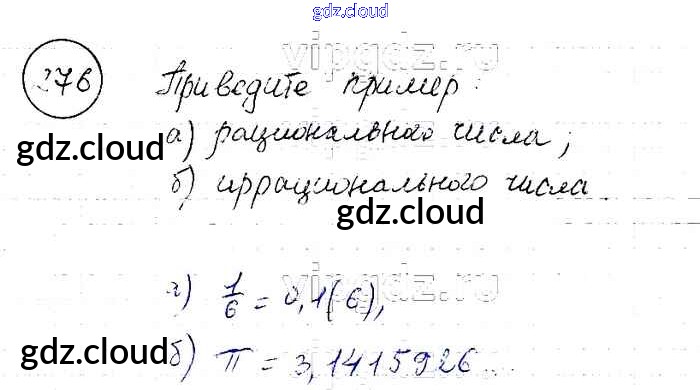 gdz.cloud
vipgdz.ru
276 Приведите пример:
gdz.cloud а) рационального числа;
б) иррационального числа.
gdz.cloud
vipgdz.ru
а) 1/6 = 0,1(6),
gdz.cloud б) π = 3,1415926...